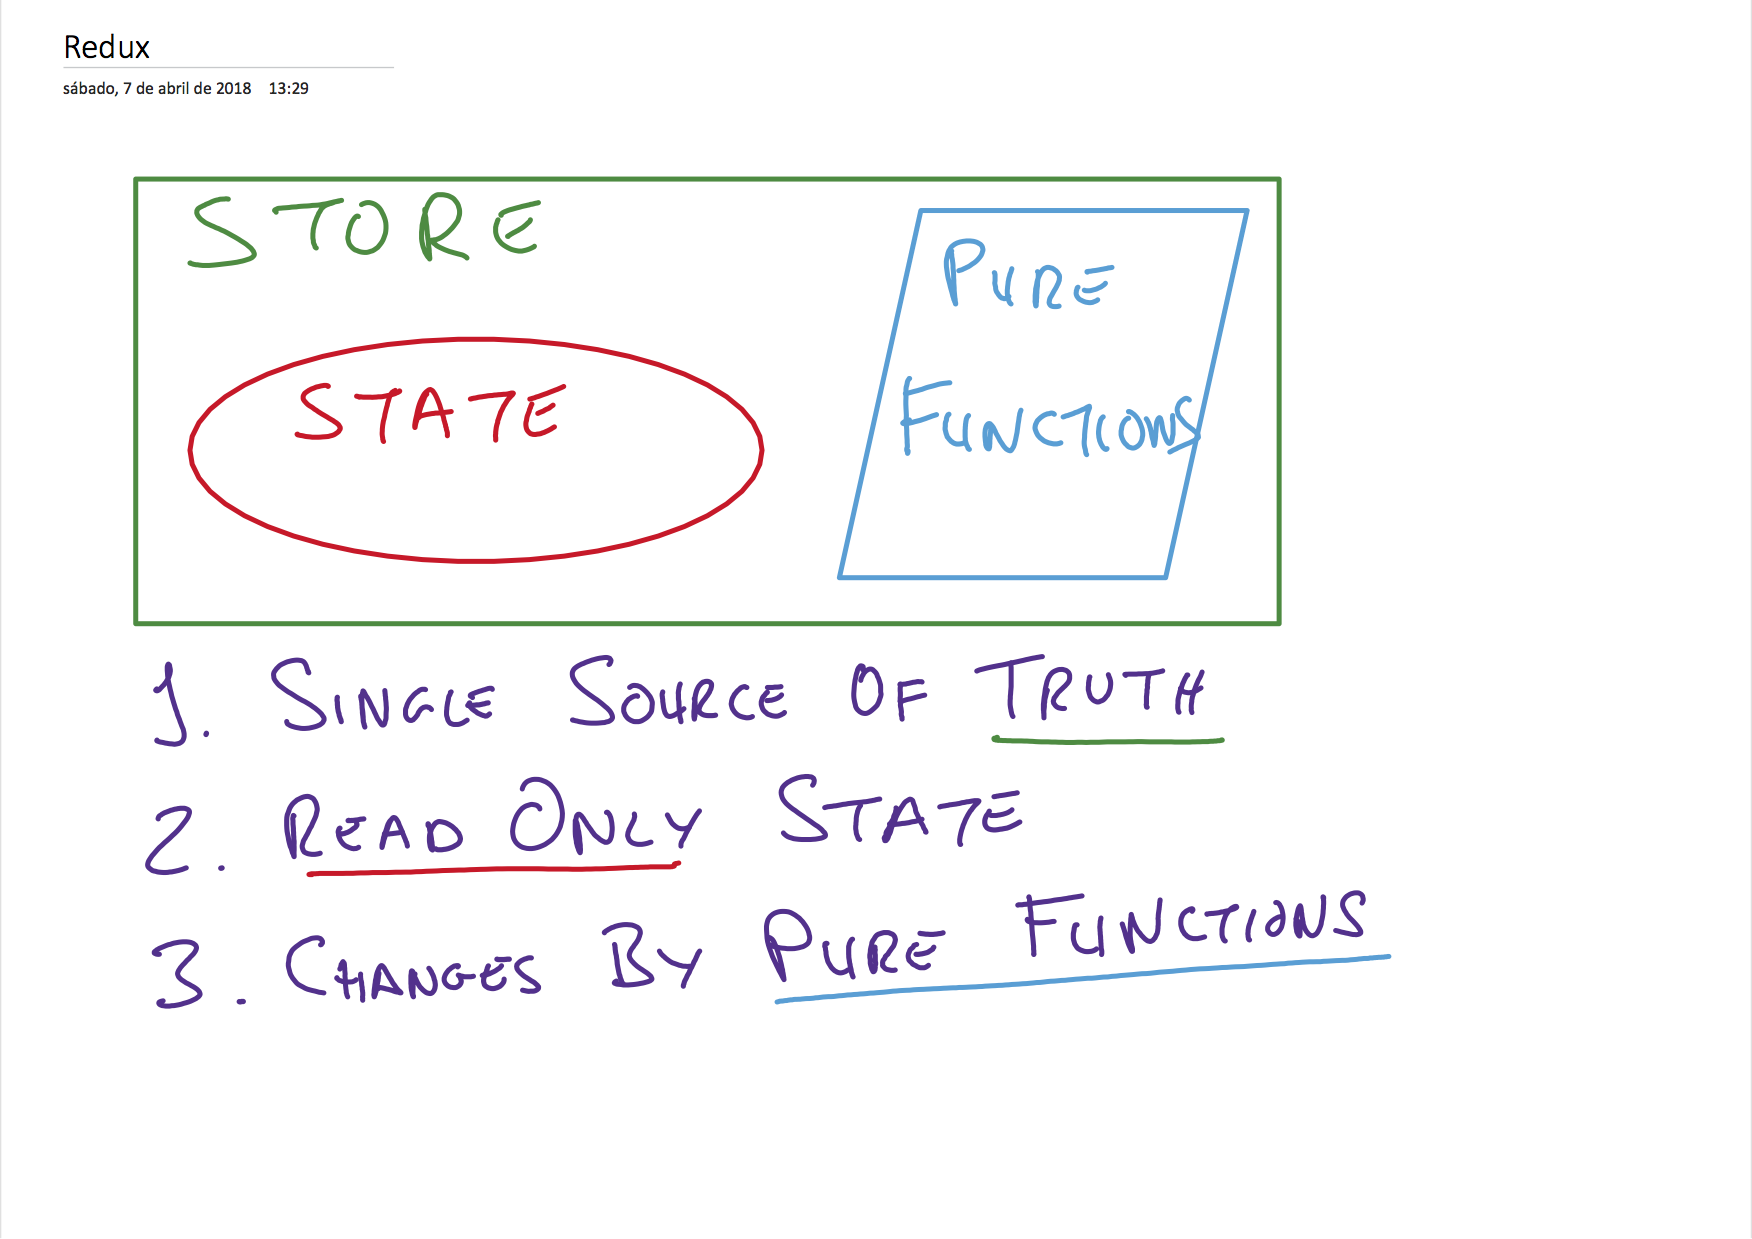 Redux
sábado, 7 de abril de 2018 13:29
STORE
PURE
STATE
FUNCTIONS
1. SINGLE SOURCE OF TRUTH
2. READ ONLY STATE
3. CHANGES BY PURE FUNCTIONS